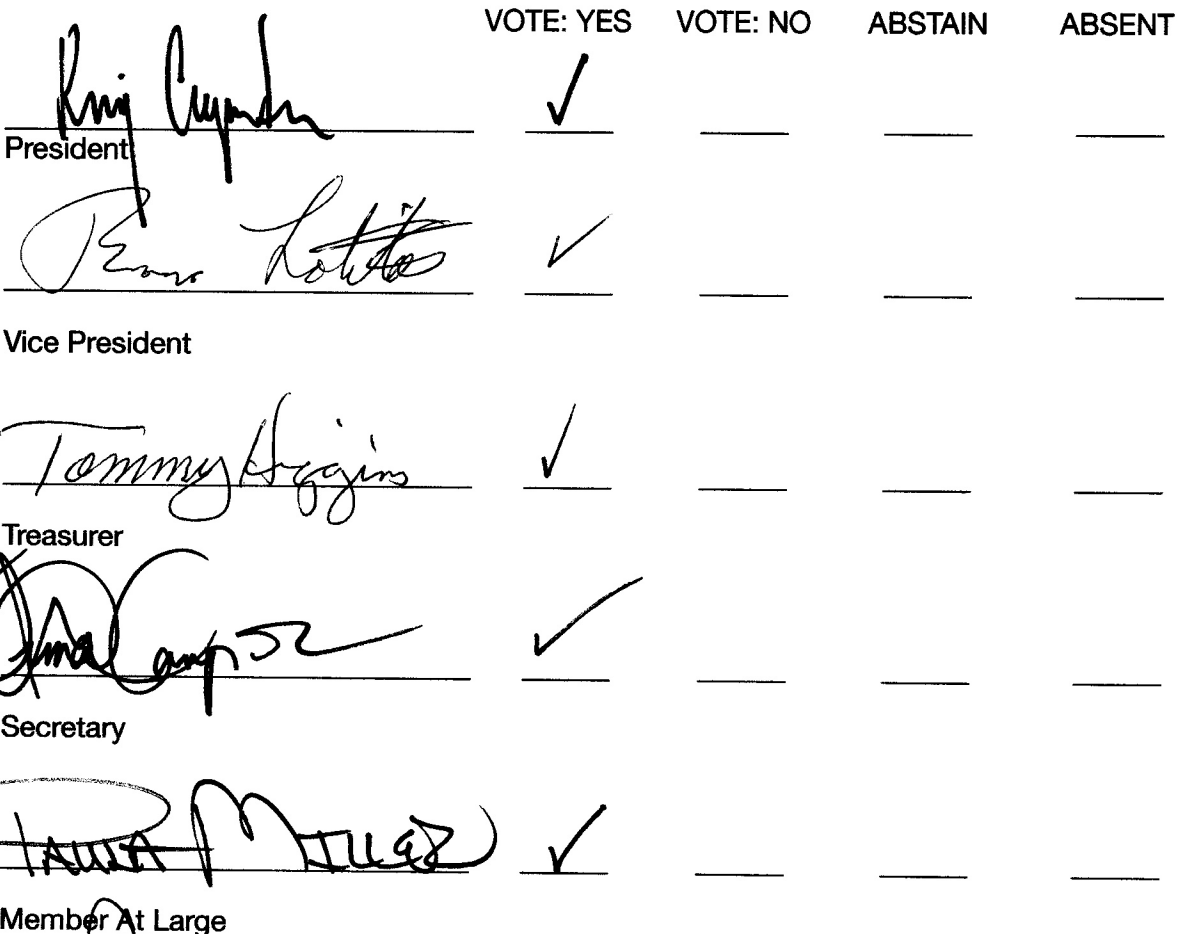 VOTE: YES VOTE: NO ABSTAIN ABSENT
✓
President
✓
Vice President
Tommy Higgins ✓
Treasurer
✓
Secretary
Paula Miller ✓
Member At Large